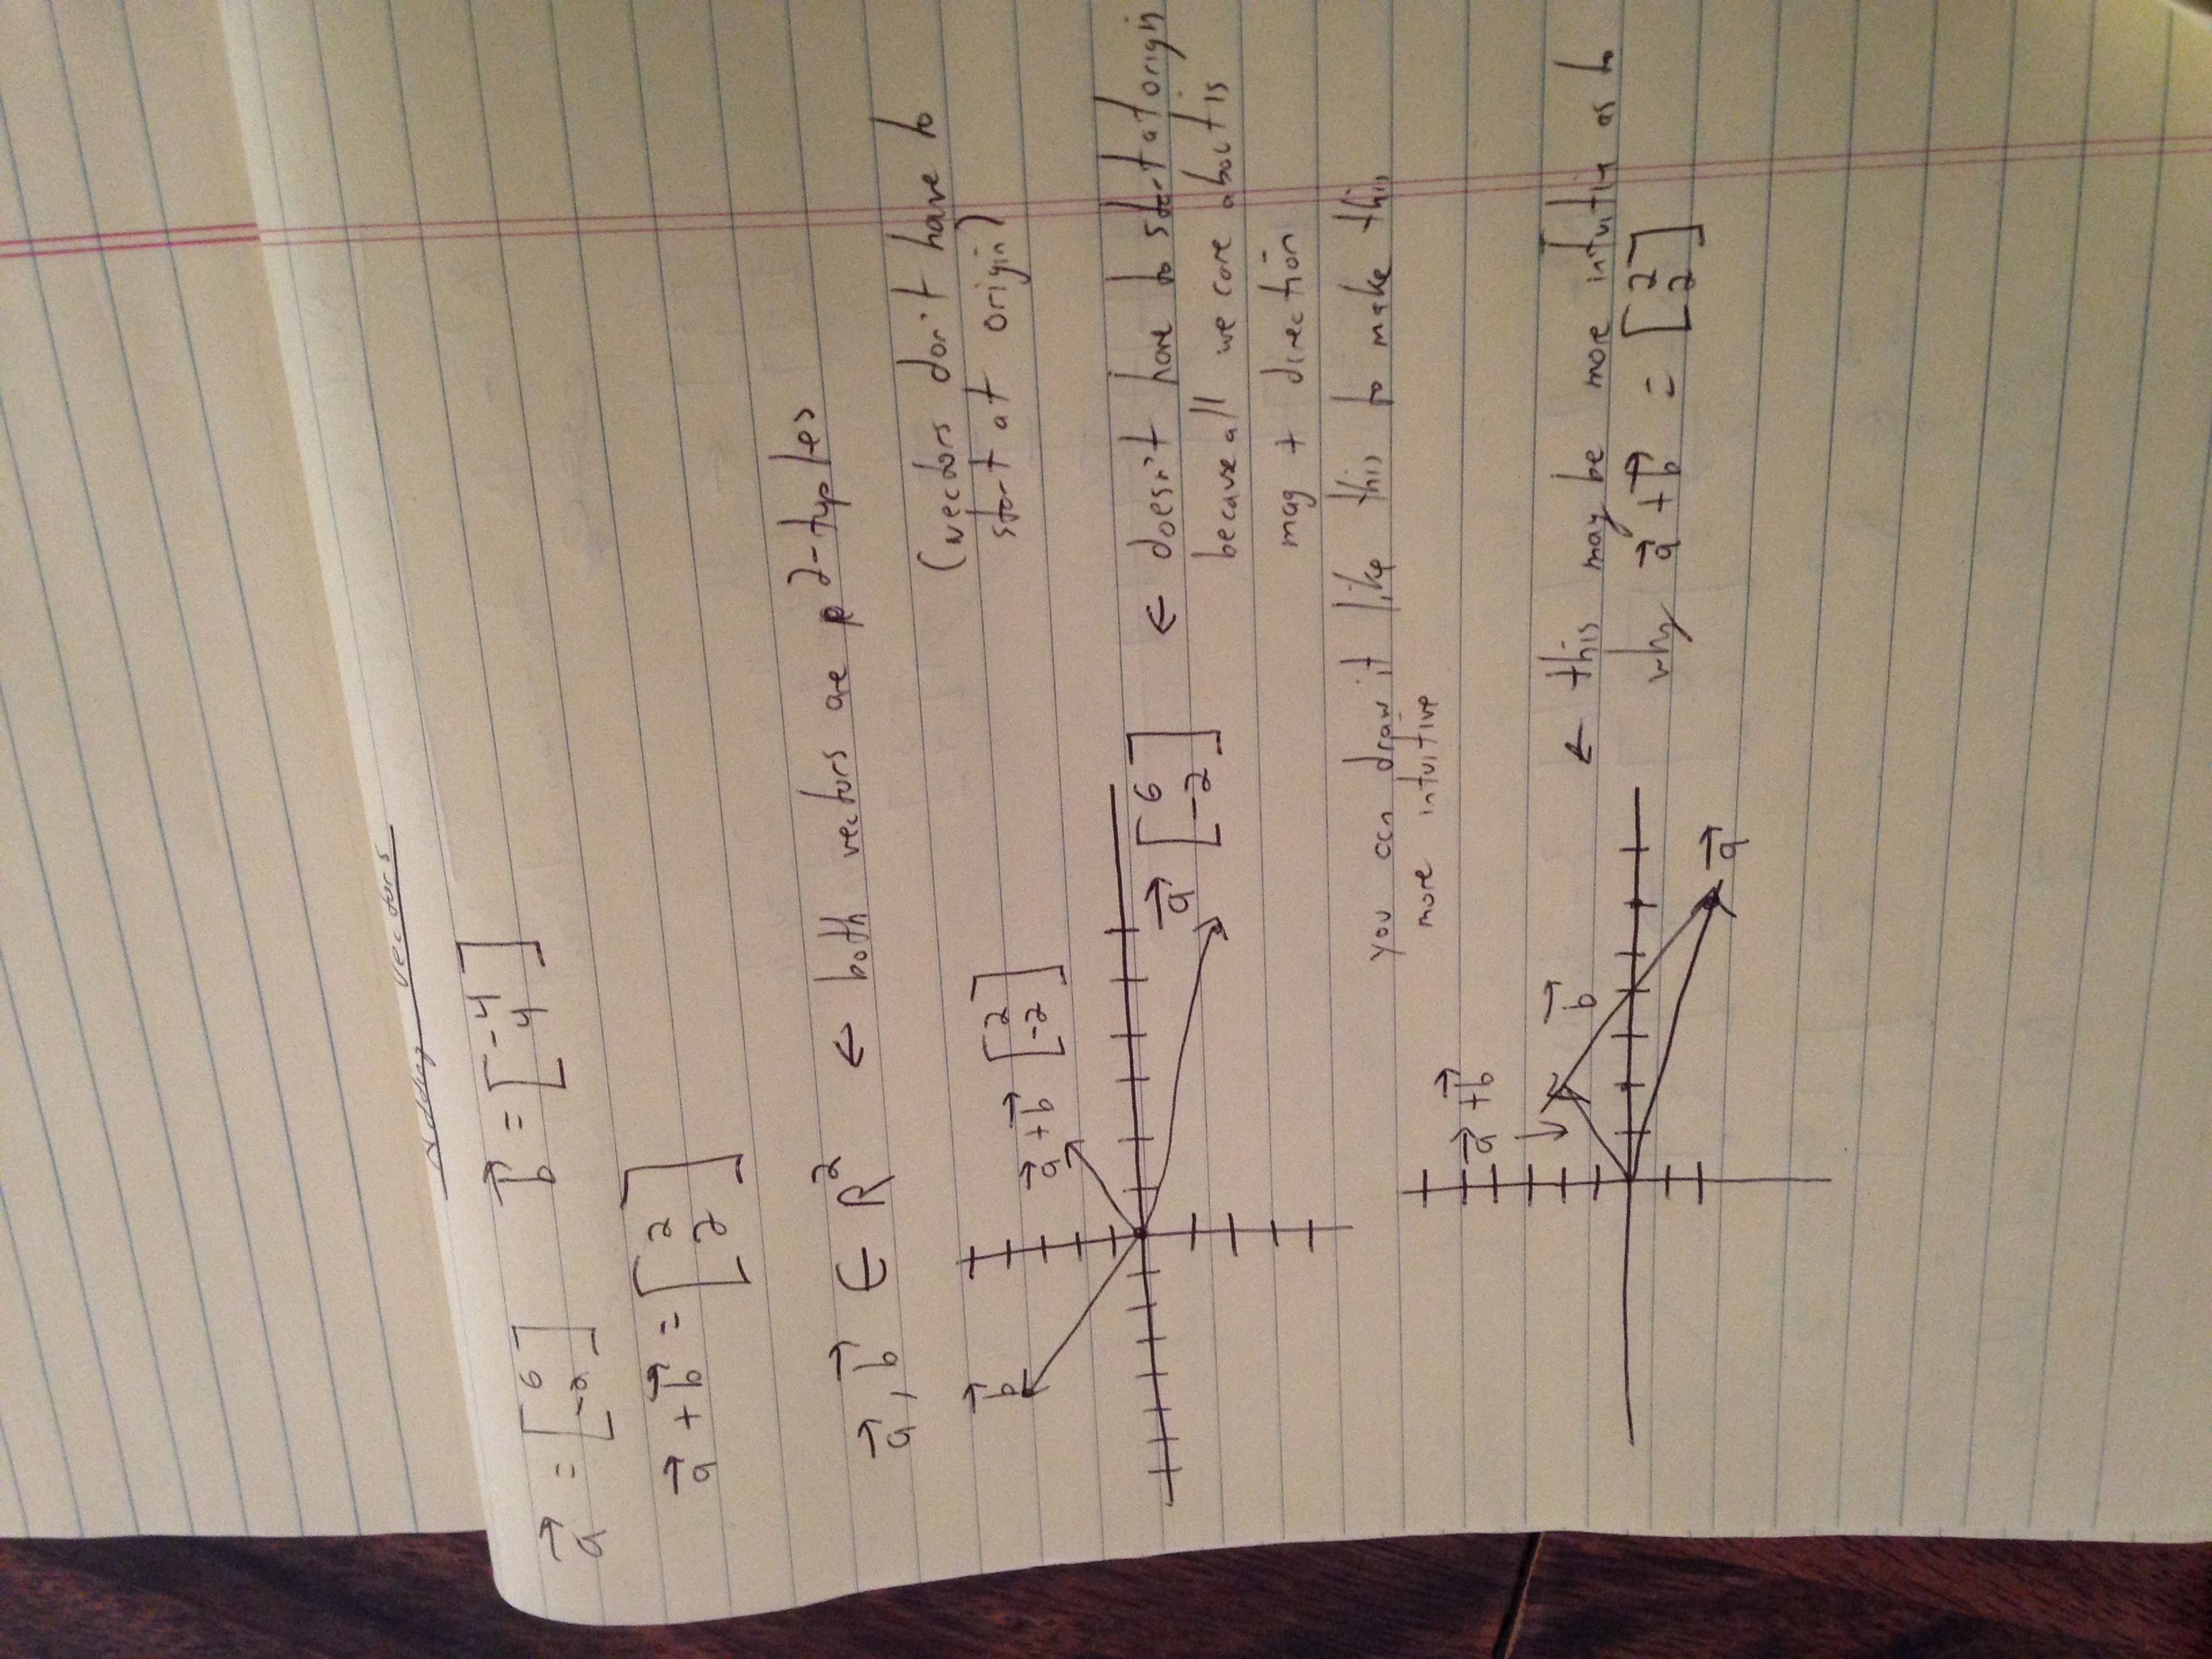 Adding Vectors
a⃗ = [6 -2] b⃗ = [-4 4]
a⃗ + b⃗ = [2 2]
a⃗, b⃗ ∈ R² ← both vectors are 2-tuples
(vectors don't have to
start at origin)
b⃗
a⃗ + b⃗ [2 -2]
a⃗ [6 -2] ← doesn't have to start at origin
because all we care about is
mag + direction
you can draw it like this to make this
more intuitive
a⃗ + b⃗
b⃗
← this may be more intuitive as to
why a⃗ + b⃗ = [2 2]
a⃗